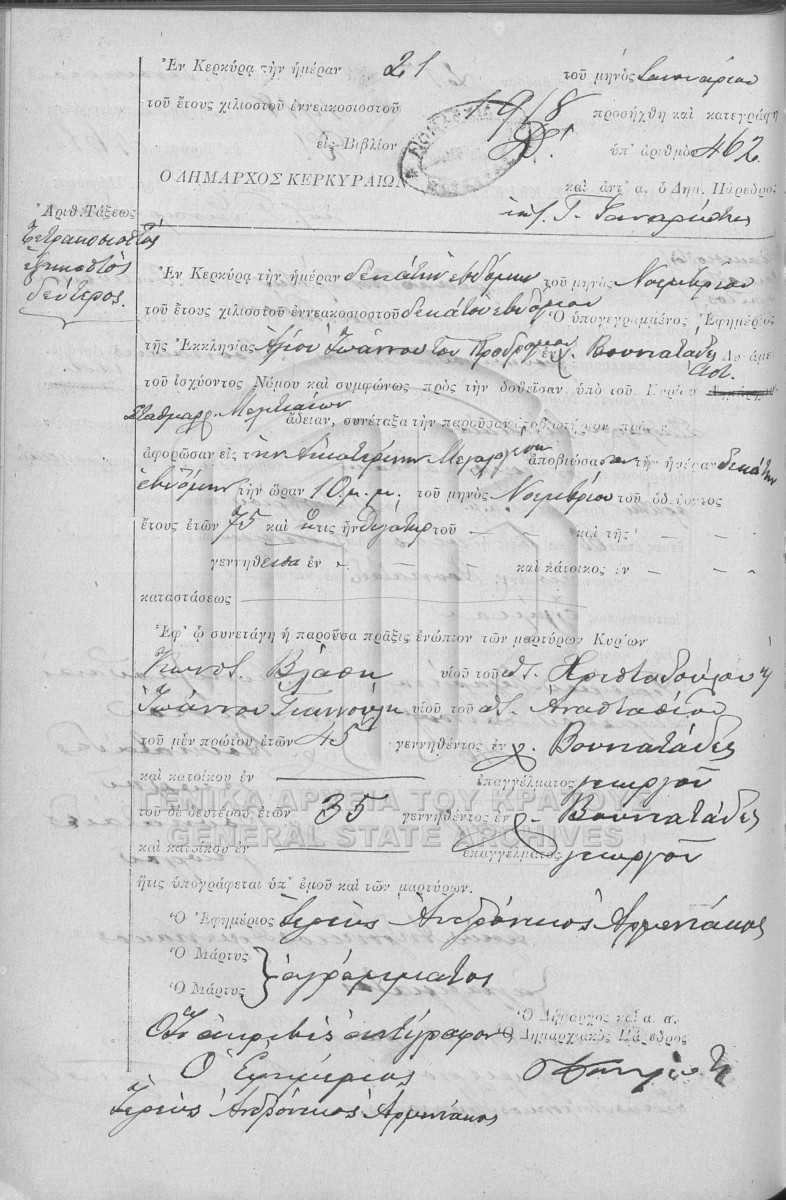 Ἐν Κερκύρᾳ τὴν ἡμέραν 21 τοῦ μηνὸς Ἰανουαρίου
τοῦ ἔτους χιλιοστοῦ ἐννεακοσιοστοῦ 1918 προσήχθη καὶ κατεγράφη
εἰς Βιβλίον Δ! ὑπ' ἀριθμὸν 462
Ο ΔΗΜΑΡΧΟΣ ΚΕΡΚΥΡΑΙΩΝ καὶ ἀντ' α. ὁ Δημ. Πάρεδρος
Ἀριθ. Τάξεως
Τετρακοσιοστὸς
ἑξηκοστὸς
δεύτερος
Ἐν Κερκύρᾳ τὴν ἡμέραν δεκάτην ἑβδόμην τοῦ μηνὸς Νοεμβρίου
τοῦ ἔτους χιλιοστοῦ ἐννεακοσιοστοῦ δεκάτου ἑβδόμου Ὁ ὑπογεγραμμένος Ἐφημέριος
τῆς Ἐκκλησίας Ἁγίου Ἰωάννου τοῦ Προδρόμου ἐν χ. Βουνατάδες Δυνάμει
τοῦ ἰσχύοντος Νόμου καὶ συμφώνως πρὸς τὴν δοθεῖσαν ὑπὸ τοῦ Κυρίου Ἀστ.
Σταθμάρχ. ἄδειαν, συνέταξα τὴν παροῦσαν ἀποβιωτήριον πρᾶξιν
ἀφορῶσαν εἰς τὴν Αἰκατερίνην ἀποβιώσασαν τὴν ἡμέραν δεκάτην
ἑβδόμην τὴν ὥραν 10 μ.μ. τοῦ μηνὸς Νοεμβρίου τοῦ ὁδεύοντος
ἔτους ἐτῶν 75 καὶ ἥτις ἦν θυγάτηρ τοῦ - - καὶ τῆς - -
γεννηθεῖσα ἐν - - καὶ κάτοικος ἐν - - -
καταστάσεως
Ἐφ' ᾧ συνετάγη ἡ παροῦσα πρᾶξις ἐνώπιον τῶν μαρτύρων Κυρίων
Κωνστ. Βλάση υἱοῦ τοῦ ποτ. Χριστοδούλου ἢ
Ἰωάννου Γιαννούλη υἱοῦ τοῦ ποτ. Ἀναστασίου
τοῦ μὲν πρώτου ἐτῶν 45 γεννηθέντος ἐν χ. Βουνατάδες
καὶ κατοίκου ἐν ἐπαγγέλματος γεωργοῦ
τοῦ δὲ δευτέρου ἐτῶν 35 γεννηθέντος ἐν χ. Βουνατάδες
καὶ κατοίκου ἐν ἐπαγγέλματος γεωργοῦ
ΓΕΝΙΚΑ ΑΡΧΕΙΑ ΤΟΥ ΚΡΑΤΟΥΣ
GENERAL STATE ARCHIVES
ἥτις ὑπογράφεται ὑπ' ἐμοῦ καὶ τῶν μαρτύρων.
Ὁ Ἐφημέριος Ἱερεὺς Ἀνδρόνικος Ἀρμενιάκος
Ὁ Μάρτυς
Ὁ Μάρτυς ἀγράμματος
Ὁ Δήμαρχος καὶ α. α.
Ὅτι ἀκριβὲς ἀντίγραφον Ὁ Δημαρχιακὸς Πάρεδρος
Ὁ Ἐφημέριος
Ἱερεὺς Ἀνδρόνικος Ἀρμενιάκος